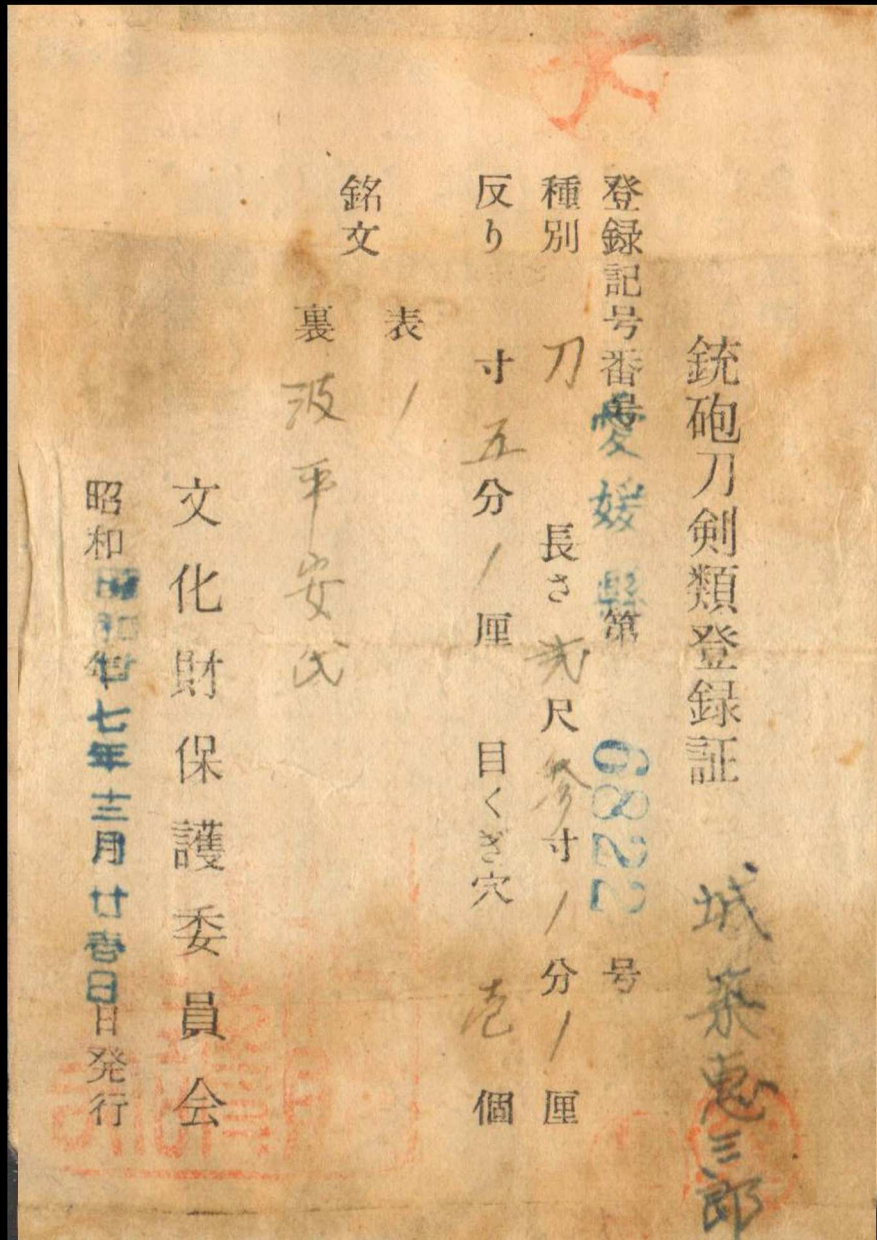 銃砲刀剣類登録証
城 惠三郎
登録記号番号 愛媛縣 第 6822 号
種別 刀 長さ 弐尺 参寸 / 分 / 厘
反り 寸 五分 / 厘 目くぎ穴 壱 個
銘文
表 /
裏 波平安氏
文化財保護委員会
昭和 昭和廿七年 三月廿壱日 日発行